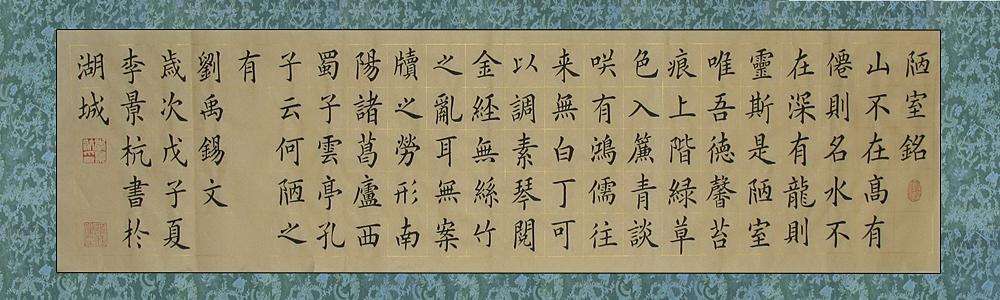 陋室銘
山不在髙有
僊則名水不
在深有龍則
靈斯是陋室
唯吾徳馨苔
痕上階緑草
色入簾青談
咲有鴻儒往
来無白丁可
以調素琴閲
金經無絲竹
之亂耳無案
牘之勞形南
陽諸葛廬西
蜀子雲亭孔
子云何陋之
有
劉禹錫文
歲次戊子夏
李景杭書於
湖城